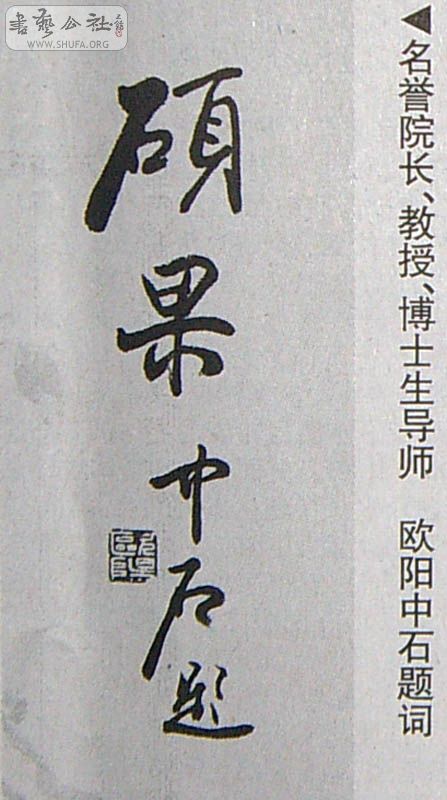 書藝公社
WWW.SHUFA.ORG
◀名誉院长、教授、博士生导师 欧阳中石题词
硕果
中石题